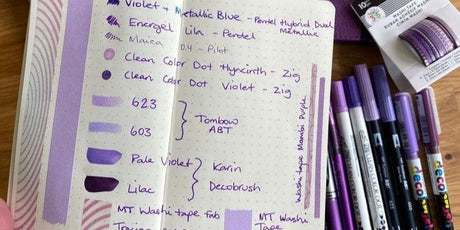 Violet + Metallic Blue - Pentel Hybrid Dual Metallic
Energel Lila - Pentel
Maica 0.4 - Pilot
Clean Color Dot Hyacinth - Zig
Clean Color Dot Violet - Zig
623
603
Tombow
ABT
Pale Violet
Lilac
Karin
Decobrush
MT Washi tape Fab
MT Washi
Tape
Washi tape Mambi Purple
WASHI TAPE
10